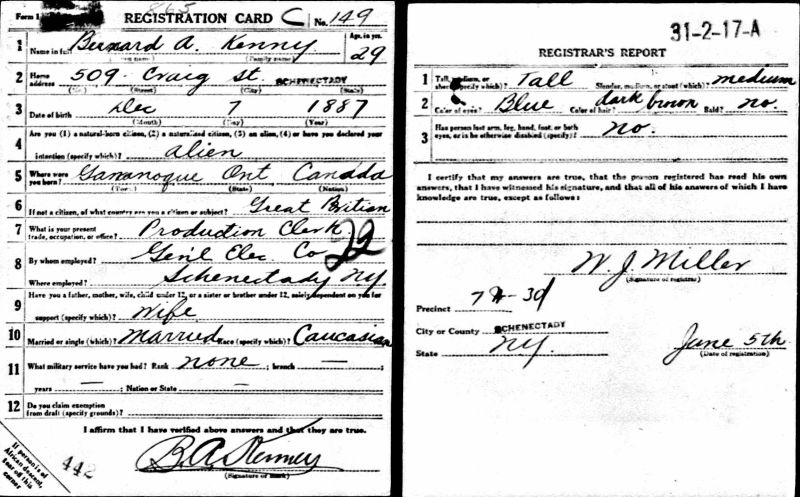 Form 1
865
REGISTRATION CARD C No. 149
1 Name in full Bernard A. Kenny Age, in yrs. 29
(Given name) (Family name)
2 Home address 509 Craig St. SCHENECTADY
(No.) (Street) (City) (State)
3 Date of birth Dec 7 1887
(Month) (Day) (Year)
4 Are you (1) a natural-born citizen, (2) a naturalized citizen, (3) an alien, (4) or have you declared your
intention (specify which)? alien
5 Where were you born? Gananoque Ont Canada
(Town) (State) (Nation)
6 If not a citizen, of what country are you a citizen or subject? Great Britian
7 What is your present trade, occupation, or office? Production Clerk
8 By whom employed? Gen'l Elec Co 22
Where employed? Schenectady NY.
9 Have you a father, mother, wife, child under 12, or a sister or brother under 12, solely dependent on you for
support (specify which)? Wife
10 Married or single (which)? Married Race (specify which)? Caucasian
11 What military service have you had? Rank none ; branch — ;
years — ; Nation or State —
12 Do you claim exemption from draft (specify grounds)?
I affirm that I have verified above answers and that they are true.
B.A. Kenney
(Signature or mark)
If person is of African descent, tear off this corner
442
31-2-17-A
REGISTRAR'S REPORT
1 Tall, medium, or short (specify which)? Tall Slender, medium, or stout (which)? medium
2 Color of eyes? Blue Color of hair? dark brown Bald? no.
3 Has person lost arm, leg, hand, foot, or both eyes, or is he otherwise disabled (specify)? no.
I certify that my answers are true, that the person registered has read his own
answers, that I have witnessed his signature, and that all of his answers of which I have
knowledge are true, except as follows:
W. J. Miller
(Signature of registrar)
Precinct
City or County SCHENECTADY
State NY.
June 5th
(Date of registration)